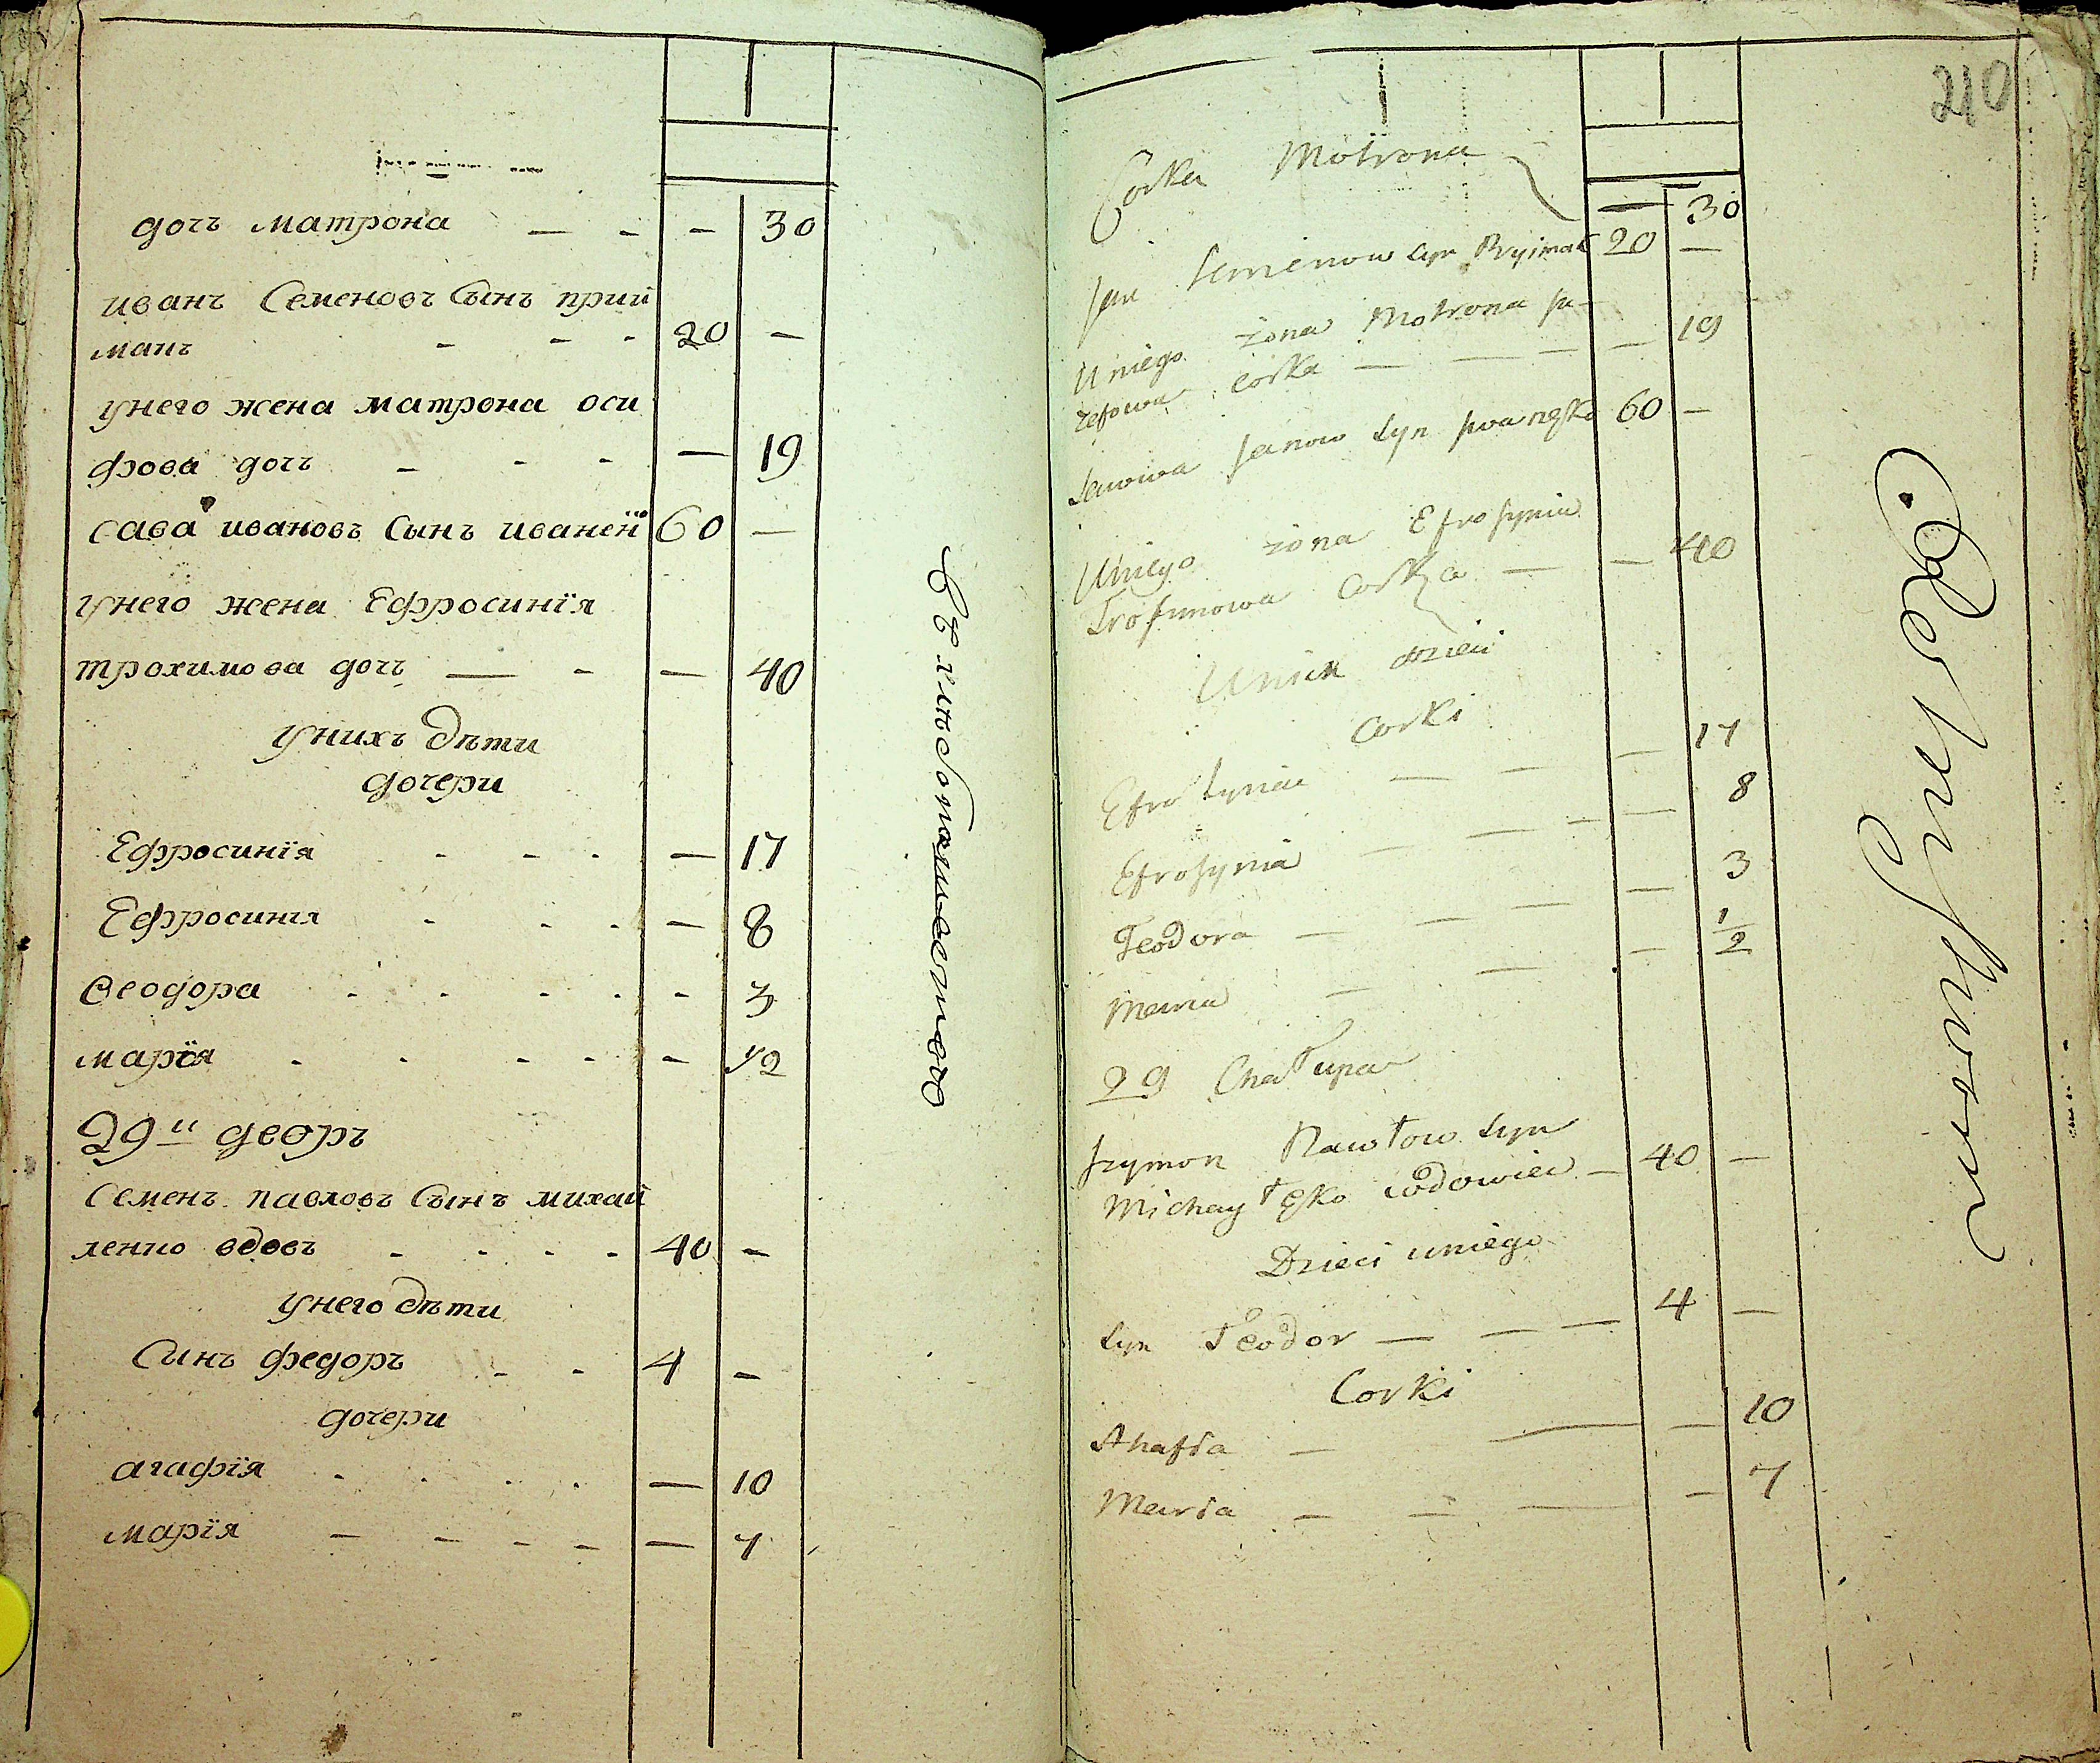 дочъ матрона — - - 30
иванъ Семеновъ Сынъ прий
манъ - - - 20 —
унего жена матрона оси
фова дочъ - - - — 19
сава ивановъ Сынъ иванен 60 —
унего жена Ефросинїя
трохимова дочъ — - — 40
унихъ дѣти
дочери
Ефросинїя - - - — 17
Ефросинїя - - - — 8
Ѳеодора - - - - - 3
марїя - - - - - 1/2
29й дворъ
Семенъ павловъ Сынъ михай
ленко вдовъ - - - - 40 -
унего дѣти
Сынъ федоръ - - 4 -
дочери
агафїя - - - - — 10
марїя - - - - — 7
210
Corka Motrona — 30
Jan Semenow Syn Pryimak 20 —
Uniego żona Motrona Ju-
zefowa corka — — — — 19
Sawwa Janow Syn Iwanęko 60 —
Uniego żona Efrosynia
Trofimowa Corka — — 40
Unich dzieci
Corki
Efrosynia — — — 17
Efrosynia — — — — 8
Teodora — — — — 3
Maria — — — 1/2
29 Chałupa
Szymon Pawłow Syn
Michayłęko wdowiec — 40 —
Dzieci uniego
Syn Teodor — — — 4 —
Corki
Ahafia — — — 10
Maria — — — — 7